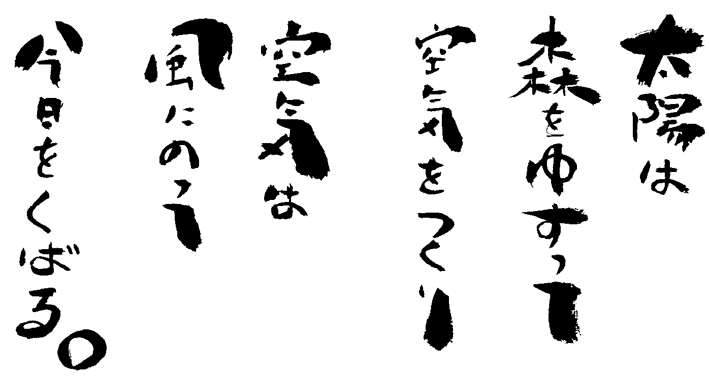 太陽は
森をゆすって
空気をつくり
空気は
風にのって
今日をくばる。